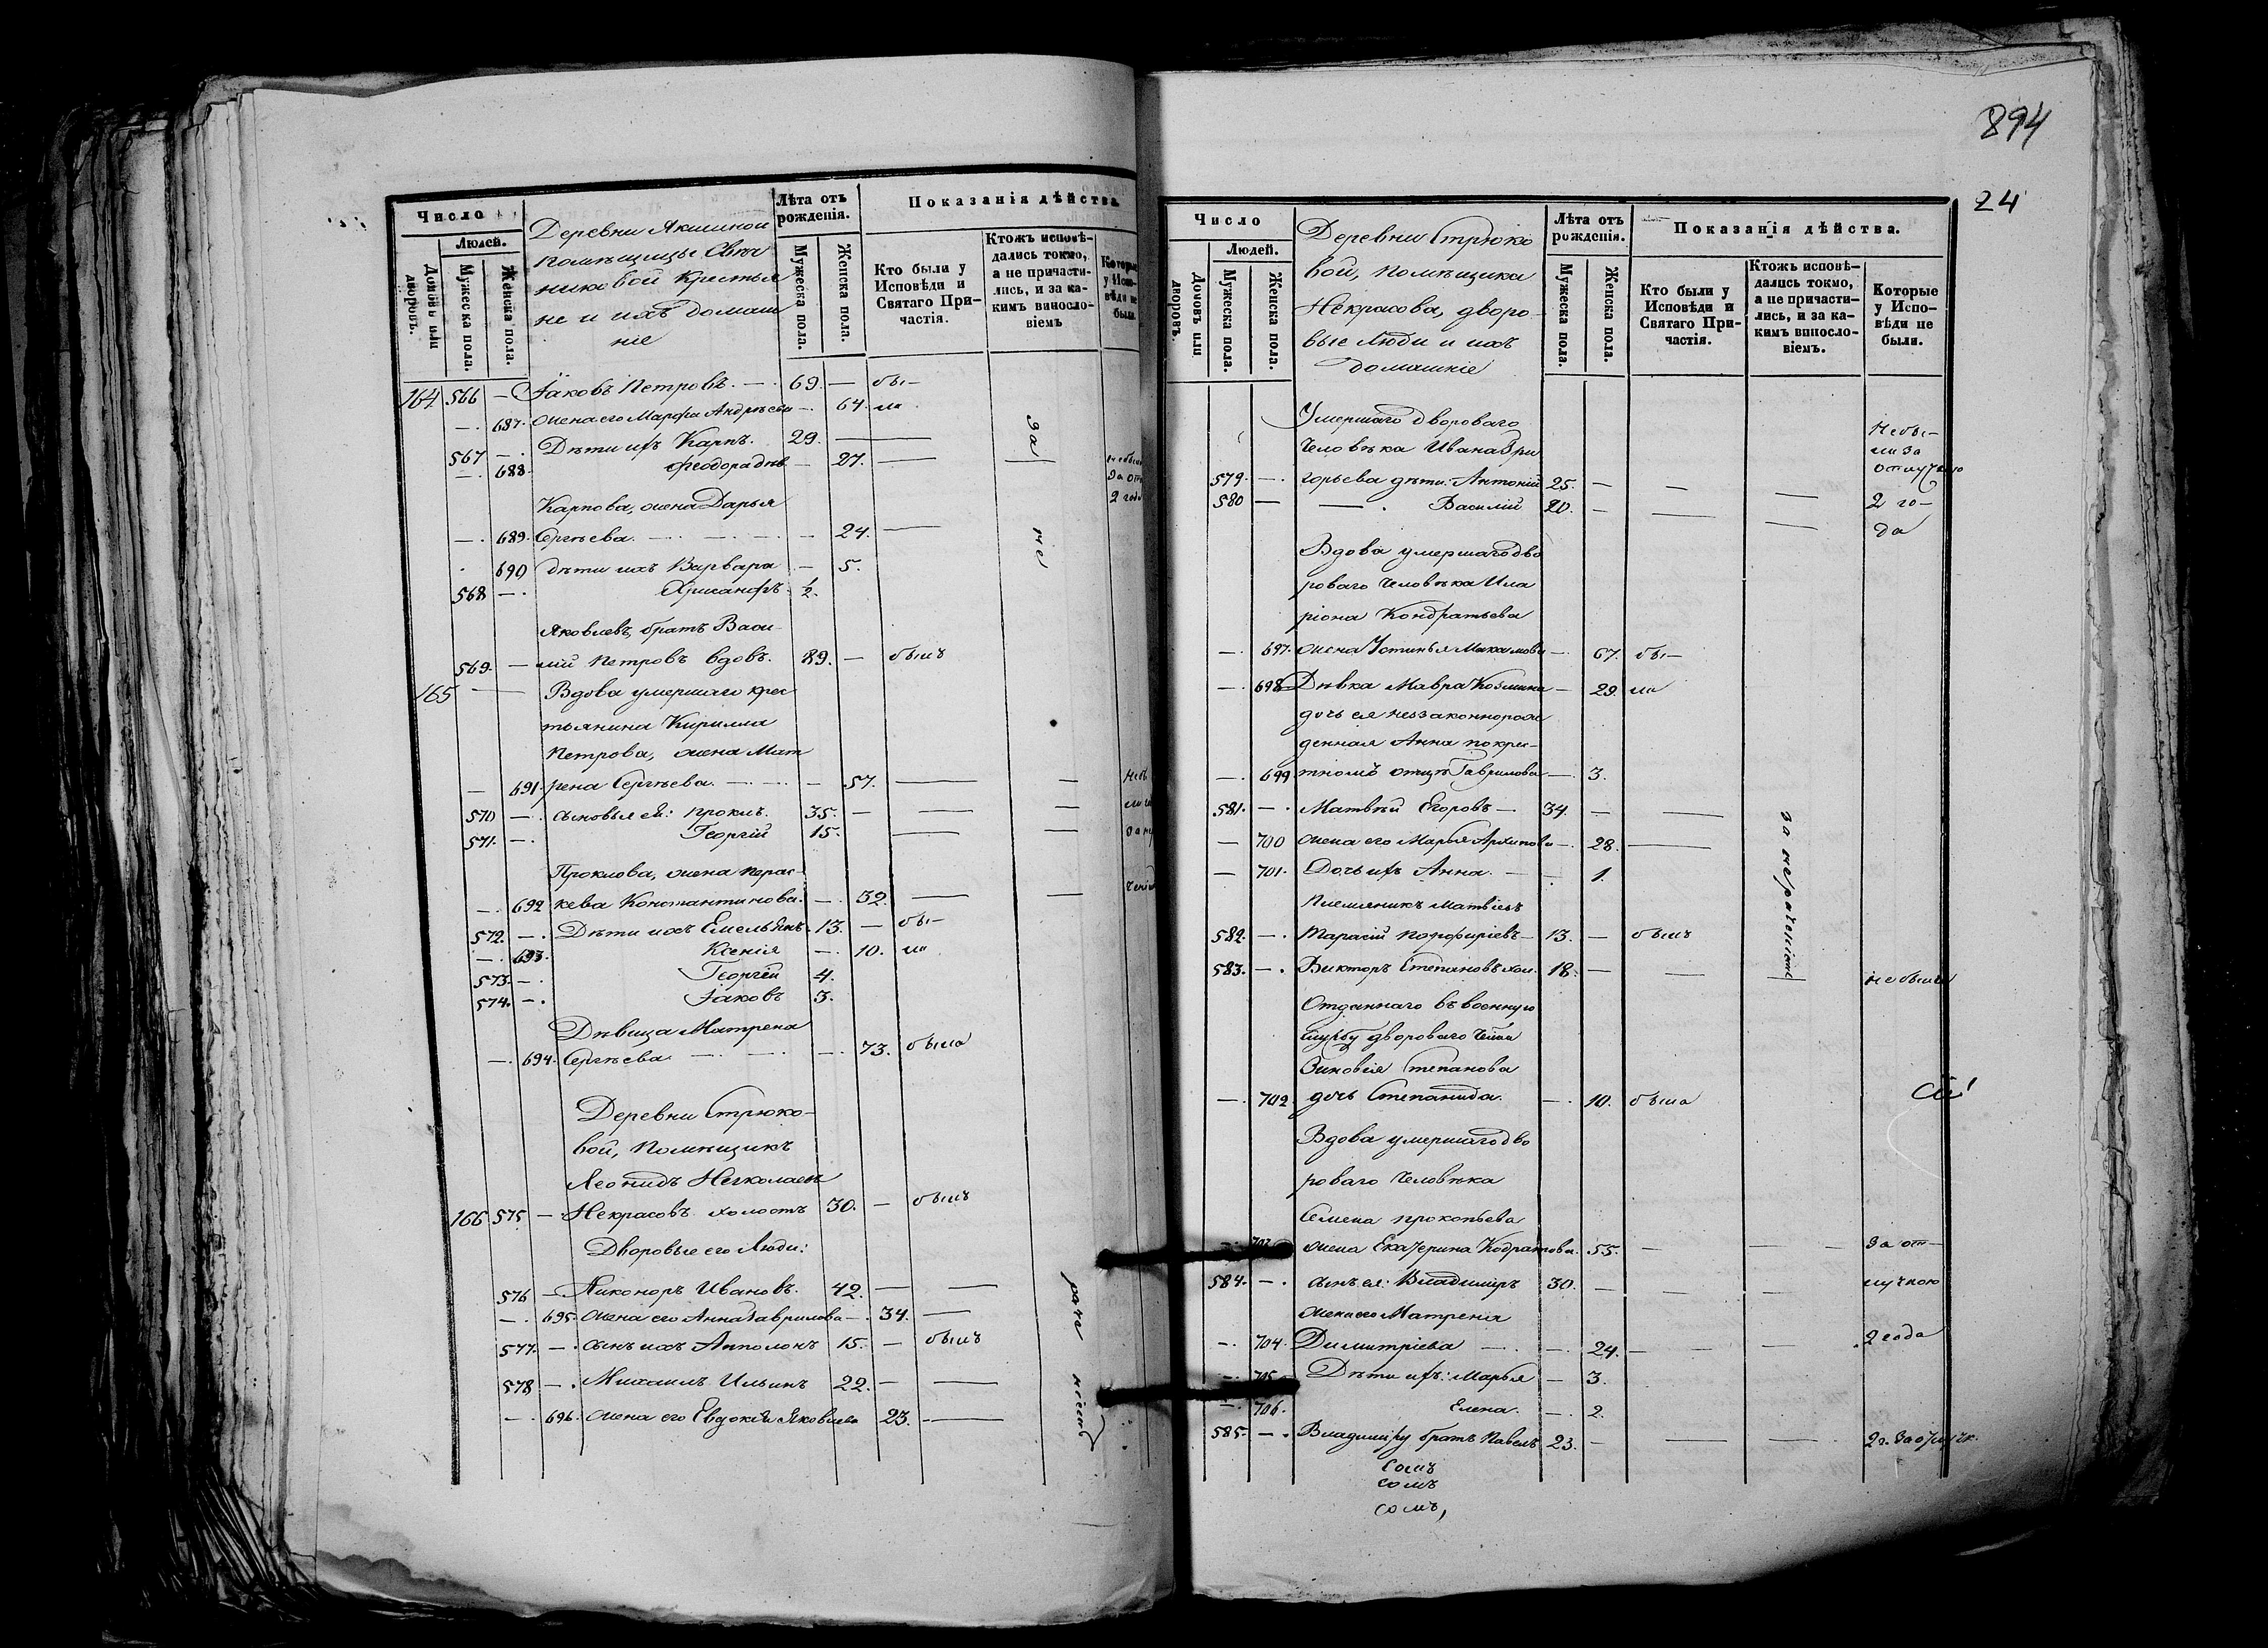 Число
Людей.
Домовъ или дворовъ.
Мужеска пола.
Женска пола.
Деревни Якшиной
помѣщицы Свѣч
никовой крестья
не и ихъ домаш
ніе
Лѣта отъ рожденія.
Мужеска пола.
Женска пола.
Показанія дѣйства.
Кто были у Исповѣди и Святаго Причастія.
Ктожъ исповѣдались токмо, а не причастились, и за какимъ винословіемъ
Которые у Исповѣди не были.
164. 566 — Іаковъ Петровъ. — 69. — бы–
— 687. жена его Марфа Андрѣева — 64. ли
567 — Дѣти ихъ Карпъ. 29. —
— 688. Феодора дѣв. — 27. —
Карпова, жена Дарья
— 689. Сергѣева. — 24. —
690 дѣти ихъ Варвара — 5.
568 — Хрисанфъ ½.
Яковлевъ, братъ Васи–
569. — лій Петровъ вдовъ. 89. — былъ
165 — Вдова умершаго крес
тьянина Кирилла
Петрова, жена Мат
— 691. рена Сергѣева. — 57. — —
570 — сыновья ея: Проклъ. 35. — — —
571. — Георгій 15. — —
Проклова, жена Парас–
— 692 кева Константинова. — 32. — —
572. — Дѣти ихъ Емельянъ. 13. — бы–
— 693. Ксенія — 10. ли
573. — Георгій 4.
574. — Іаковъ 3.
Дѣвица Матрена
— 694. Сергѣева. — 73. была
Деревни Стрюко–
вой, Помѣщикъ
Леонидъ Николаевъ
166 575 — Некрасовъ холостъ 30. — былъ
Дворовые его люди:
576 — Никоноръ Ивановъ. 42. — —
— 695. жена его Анна Гаврилова — 34. —
577. — сынъ ихъ Апполонъ 15. — былъ
578 — Михаилъ Ильинъ 22. — —
— 696. жена его Евдокія Яковлева 23. —
за
не
894
24
Число
Людей.
Домовъ или дворовъ.
Мужеска пола.
Женска пола.
Деревни Стрюко
вой, помѣщика
Некрасова, дворо–
вые люди и ихъ
домашніе
Лѣта отъ рожденія.
Мужеска пола.
Женска пола.
Показанія дѣйства.
Кто были у Исповѣди и Святаго Причастія.
Ктожъ исповѣдались токмо, а не причастились, и за какимъ винословіемъ.
Которые у Исповѣди не были.
Умершаго двороваго Небы–
человѣка Ивана Гри ли за
отлучкою
579. — горьева дѣти: Антоній 25. — — —
580 — Василій 20. — — — 2 го–
да
Вдова умершаго дво
роваго человѣка Ила
ріона Кондратьева
— 697. жена Устинья Максимова — 67. бы–
— 698 Дѣвка Мавра Козмина — 29. ла
дочь ея незаконнорож
денная Анна по крес–
— 699. тномъ отцѣ Гаврилова — 3.
581. — Матвѣй Егоровъ — 34. — —
— 700 жена его Марья Архипова — 28. —
— 701. Дочь ихъ Анна. — 1.
Племянникъ Матвѣевъ
582. — Тарасій Порфиріевъ — 13. — былъ
583. — Викторъ Степановъ хол. 18. — — не былъ
за нераченіемъ
Отданнаго въ военную
службу двороваго чел.
Зиновія Степанова
— 702 дочь Степанида. — 10. была
Вдова умершаго дво
роваго человѣка
Семена Прокопьева
— 703 жена Екатерина Кодратова. 55. — — — За от–
584. — сынъ ея: Владимиръ 30. — — — лучкою
жена его Матрена
— 704. Димитріева — 24. — — — 2 года
— 705 Дѣти ихъ: Марья — 3.
— 706. Елена. — 2.
585. — Владиміру братъ Павелъ 23. — — — 2 г. за отлучк.
сомъ
сомъ
сомъ,